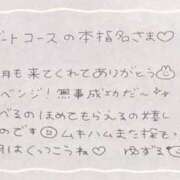 ートコースの本指名さま♡
月も来てくれてありがとう
ベンジ!無事成功だ〜
べるのほめてもらえるの嬉し
のです ムキハムまた桜も
はくっつこうね♡ ゆずる